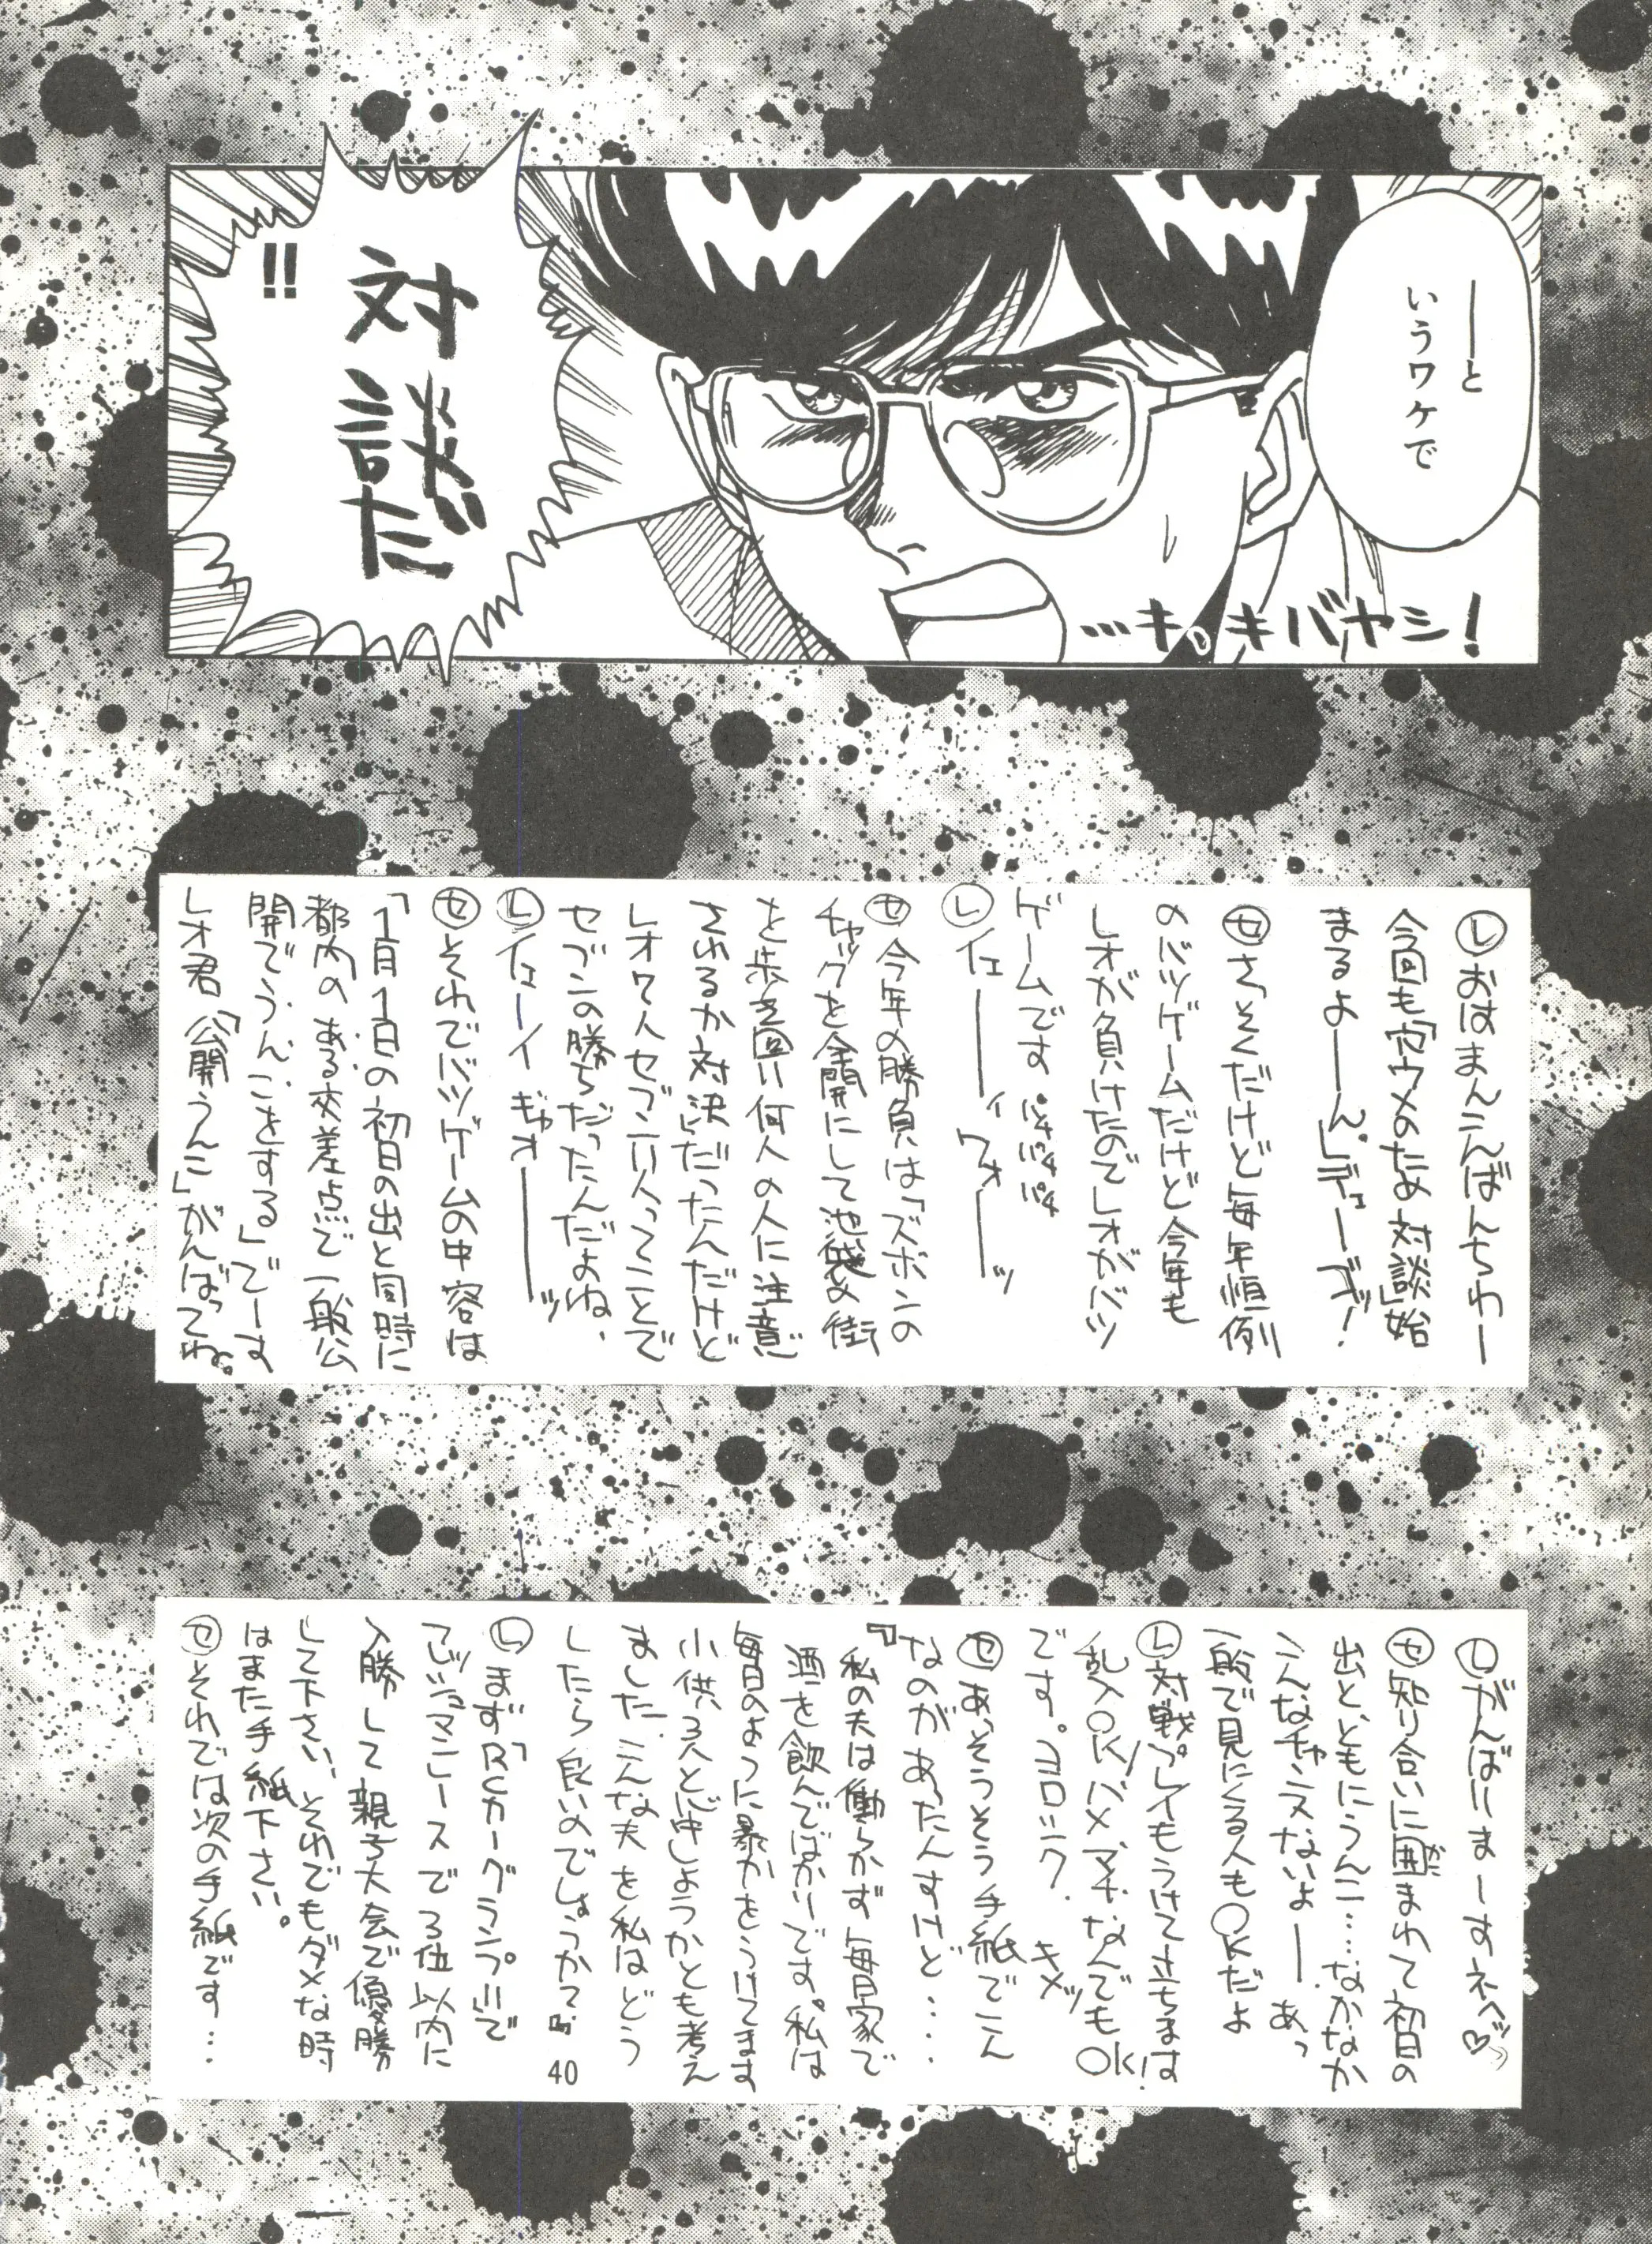 ──と
いうワケで
…キ。キバヤシ!
対談だ
!!
レおはまんこんばんちわー
今回も「穴ウメのため対談」始
まるよーーん。」デェーーゴッ!
セさっそくだけど毎年恒例
のバツゲームだけど今年も
レオが負けたのでレオがバツ
ゲームです パチパチパチ
レイェーーィウォーーッ
セ今年の勝負は「ズボンの
チャックを全開にして池袋の街
を歩き回り何人の人に注意
されるか対決」だったんだけど
レオ7人セブン11人ってことで
セブンの勝ちだったんだよね、
レイェーーイギャオーーーッ
セそれでバツゲームの中容は
「1月1日の初日の出と同時に
都内のある交差点で一般公
開でうんこをする」でーす
レオ君「公開うんこ」がんばってね。
レがんばりまーすネヘッ♡
セ知り合いに囲まれて初日の
がこ
出と、ともにうんこ…なかなか
こんなチャンスないよー、あっ
一般で見にくる人もOKだよ
レ対戦プレイもうけて立ちます
乱入OK!バメマチなんでもOK!
です。ヨロシク、キメッ
セあっそうそう手紙でこん
なのがあったんすけど‥‥
『私の夫は働らかず毎日家で
酒を飲んでばかりです。私は
毎日のように暴力をうけてます
小供3人と心中しようかとも考え
ました。こんな夫を私はどう
したら良いのでしょうか?』
レまず「RCカーグランプリ」で
マンスリースで3位以内に
入勝して親子大会で優勝
して下さい、それでもダメな時
はまた手紙下さい。
セそれでは次の手紙です…
40